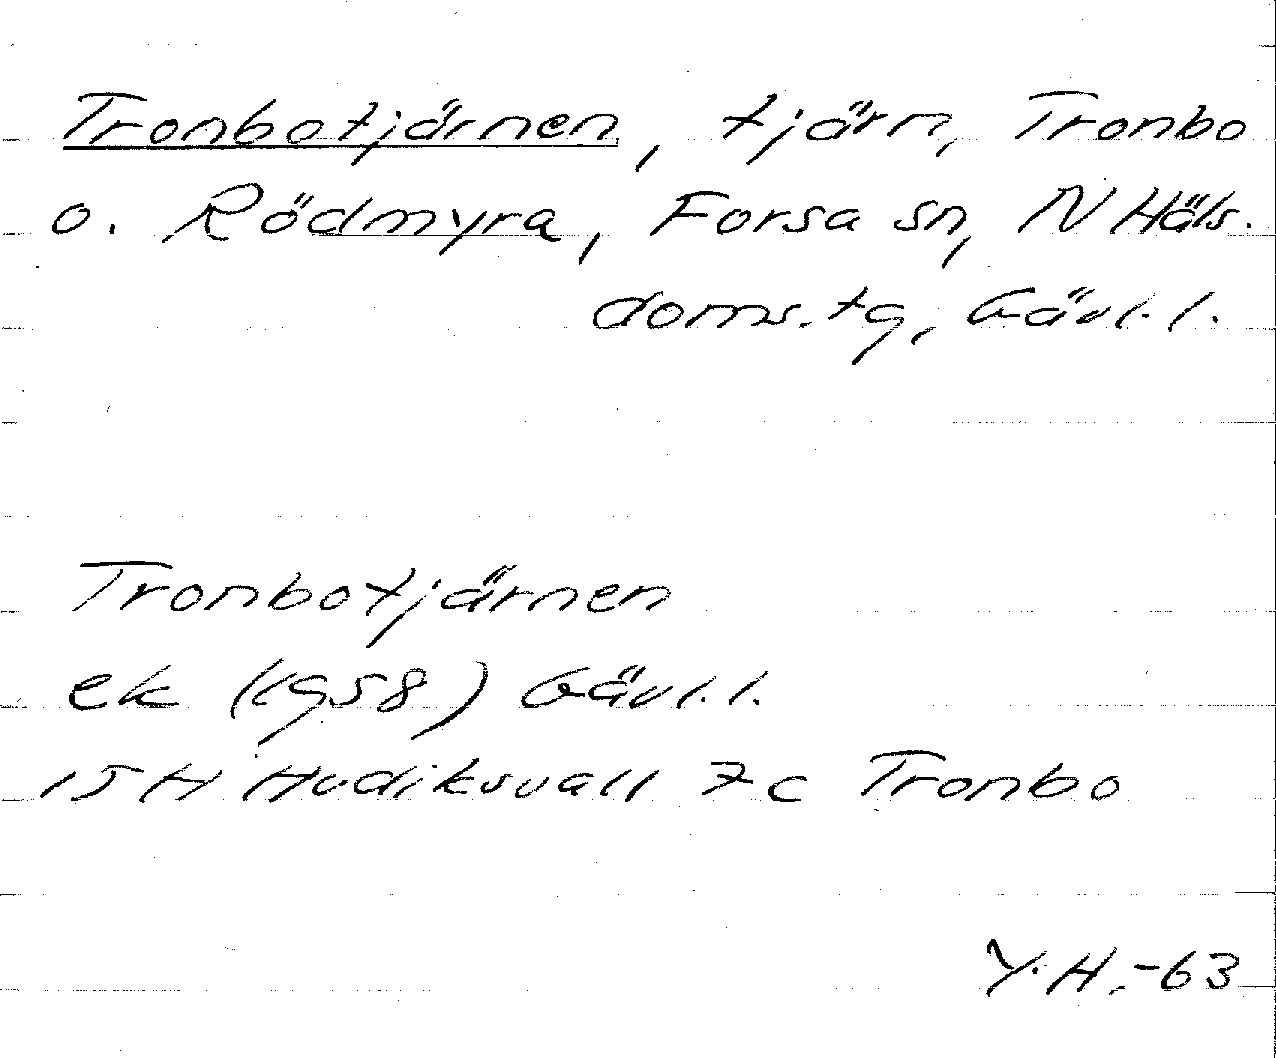 Tronbotjärnen, tjärn, Tronbo
o. Rödmyra, Forsa sn, N Häls.
doms.tg, Gävl.l.
Tronbotjärnen
ek (1958) Gävl.l.
15H Hudiksvall 7c Tronbo
Y.H.-63